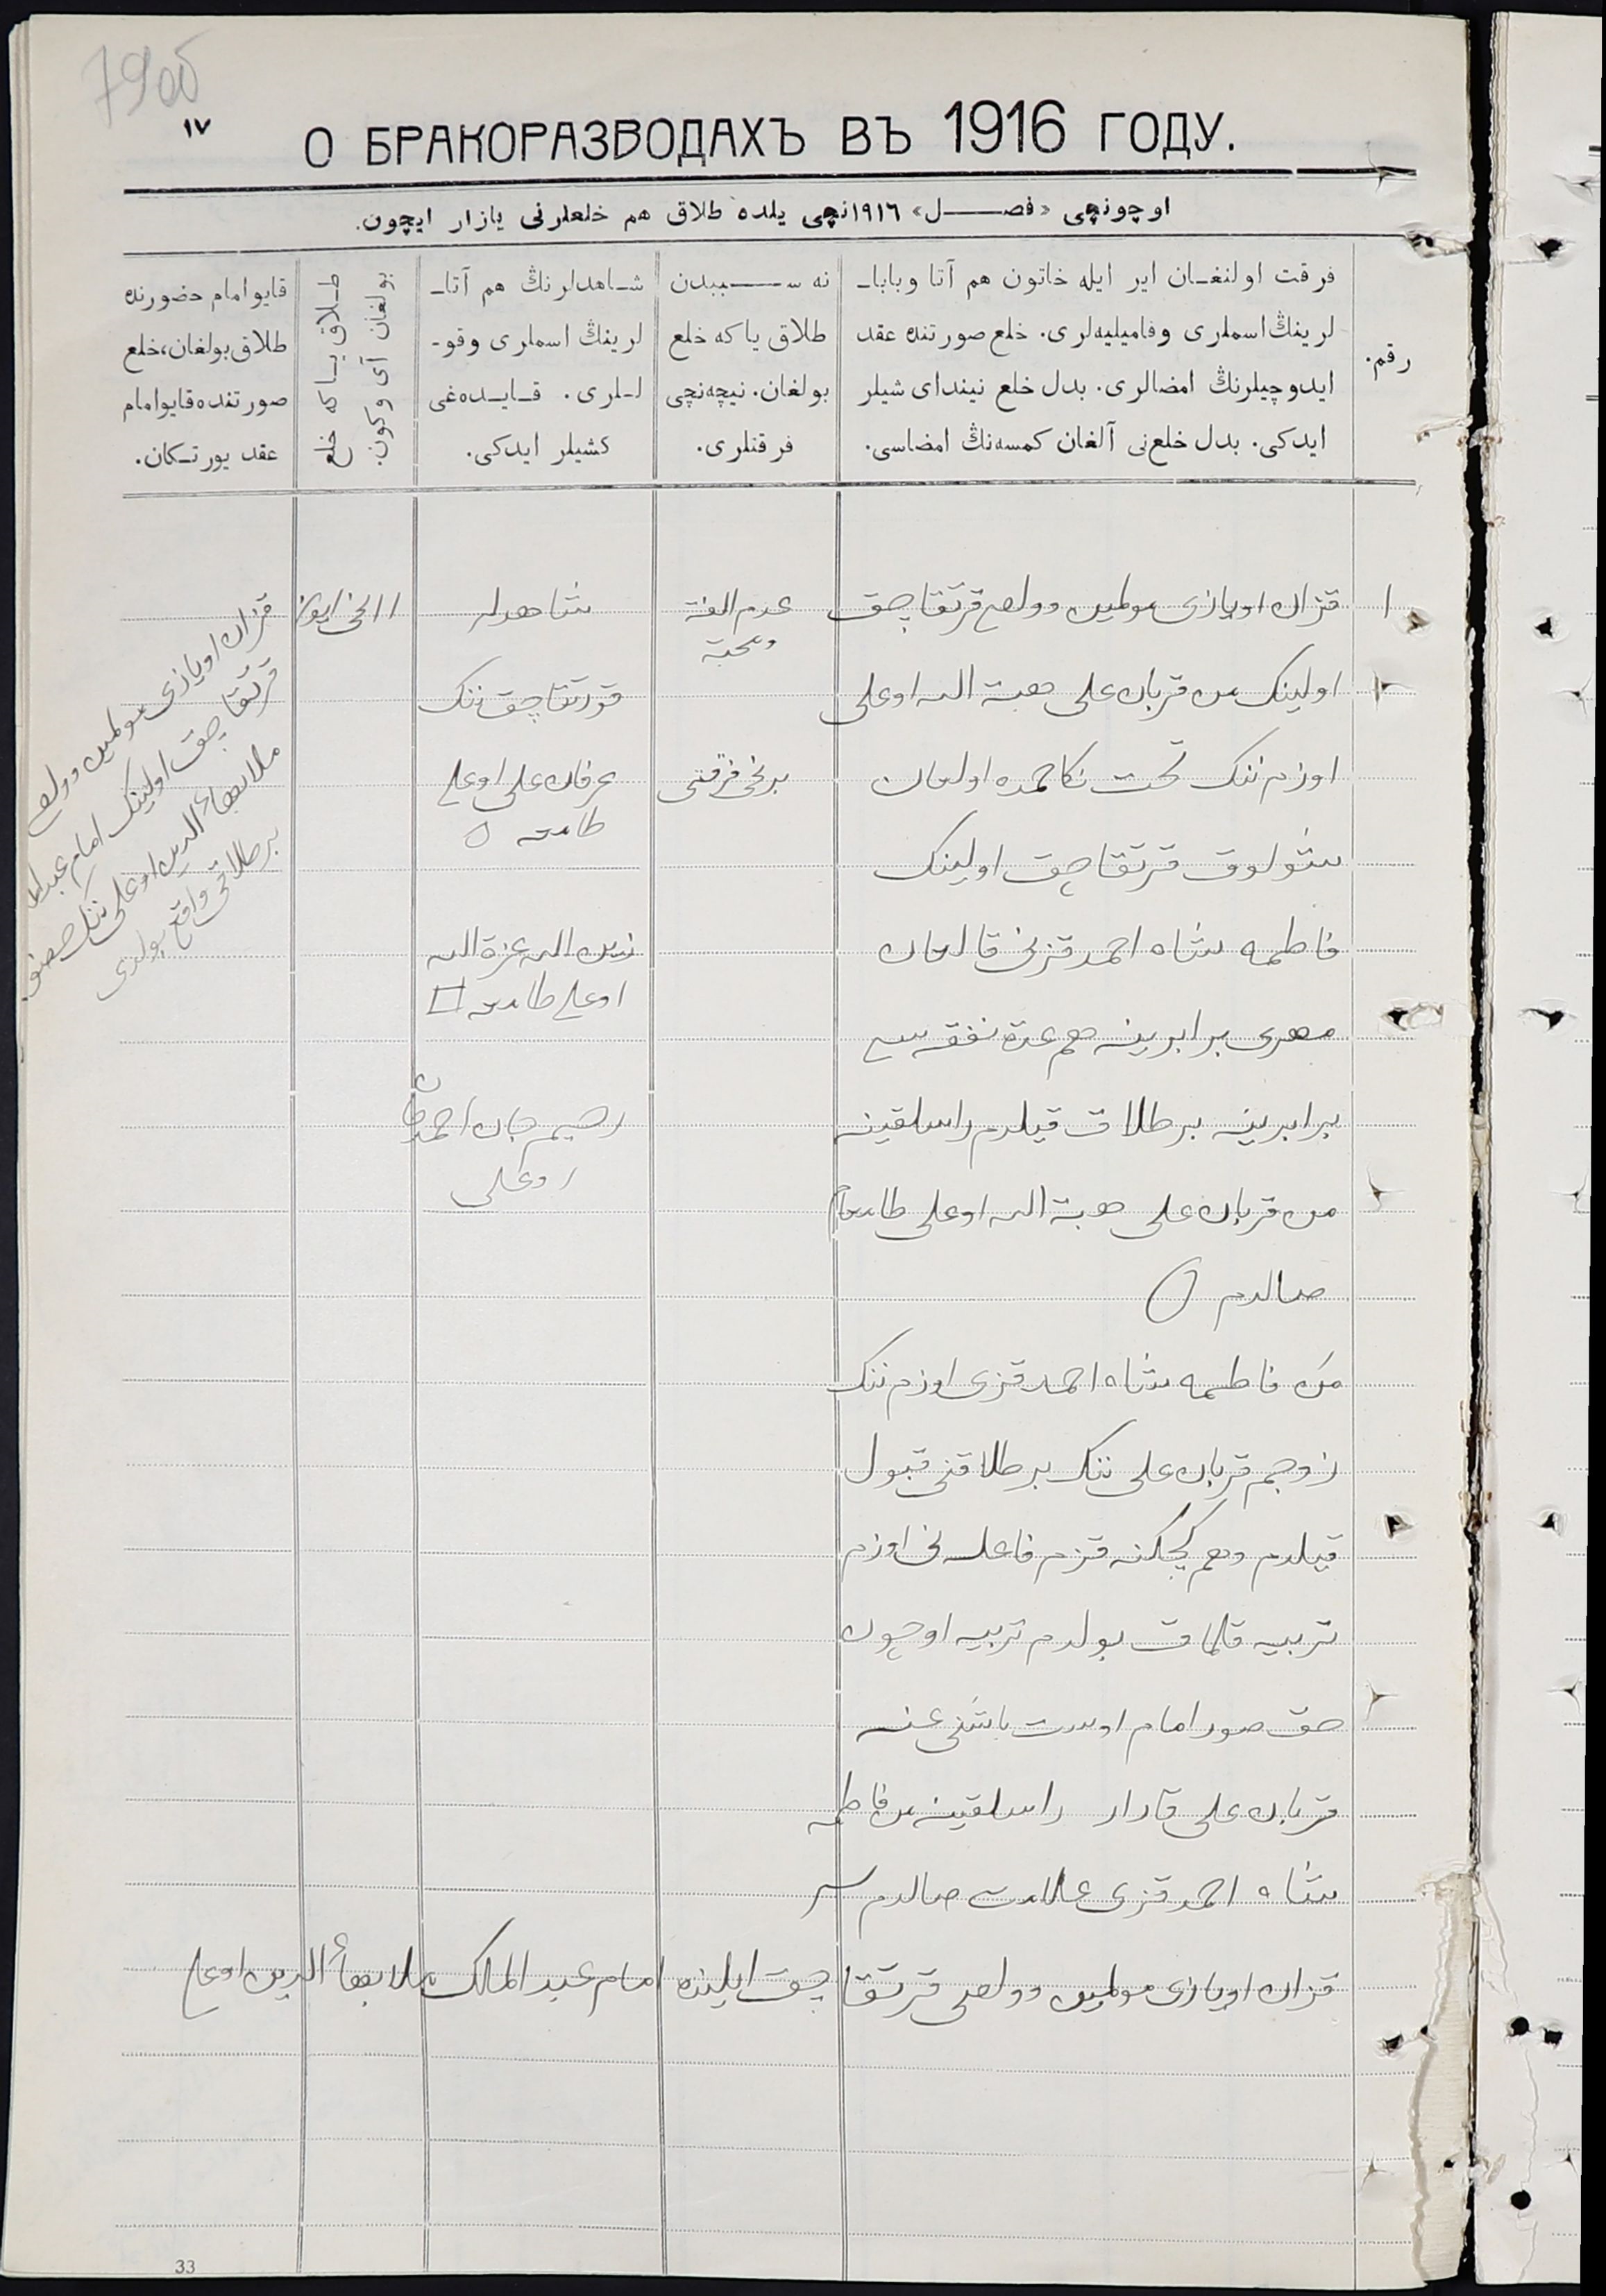 79об
١٧
О БРАКОРАЗВОДАХЪ ВЪ 1916 ГОДУ.
اوچونچی «فصل» ١٩١٦نچی یلده طلاق هم خلعلرنی یازار ایچون.
رقم.
فرقت اولنغان ایر ایله خاتون هم آتا و بابا-
لرینڭ اسملری و فامیلیه‌لری. خلع صورتنده عقد
ایدوچیلرنڭ امضالری. بدل خلع نیندای شیلر
ایدکی. بدل خلعنی آلغان کمسه‌نڭ امضاسی.
نه سببدن
طلاق یا که خلع
بولغان. نیچه‌نچی
فرقتلری.
شاهدلرنڭ هم آتا-
لرینڭ اسملری و قو-
للری. قایده‌غی
کشیلر ایدکی.
طلاق یا که خلع
بولغان آی و کون.
قایو امام حضورنده
طلاق بولغان، خلع
صورتنده قایو امام
عقد یورتکان.
١
قزان اویازی وولصی قرتقاچق
اولینک من قربان علی هبة الله اوغلی
اوزم ننک تحت نکاحمده اولغان
شولوق قرتقاچق اولینک
فاطمه شاه احمد قزنی قالغان
مهری برابرینه هم عدة نفقه سی
برابرینه بر طلاق قیلدم راسلقینه
من قربان علی هبة الله اوغلی طامغام
صالدم
من فاطمه شاه احمد قزی اوزم ننک
زوجم قربان علی ننک بر طلاقنی قبول
قیلدم وهم کچکنه قزم نی اوزم
تربیه قلماق بولدم تربیه اوچون
حق
قربان علی راسلقینه من فاطمه
شاه احمد قزی علامت صالدم
عدم الفة
ومحبة
برنچی فرقتی
شاهدلر
قورتقاچق ننک
عرفان علی اوغلی
طامغه
زین الله عزة الله
اوغلی طامغه
رحیم جان احمدجان
اوغلی
١١نچی
قزان اویازی وولصی
قرتقاچق اولینک امام
ملا بهاء الدین اوغلی ننک
بر طلاقی واقع بولدی
قزان اویازی وولصی قرتقاچق ایلینده امام عبد الملک ملا بهاء الدین اوغلی
33